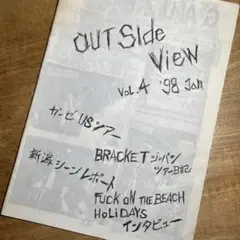 OUTSIde
VIeW
VOL.4 '98 Jan
ガンビ USツアー
新潟シーンレポート
BRACKET ジャパン
ツアー日記
FUCK ON THE BEACH
HOLiDAYS
インタビュー